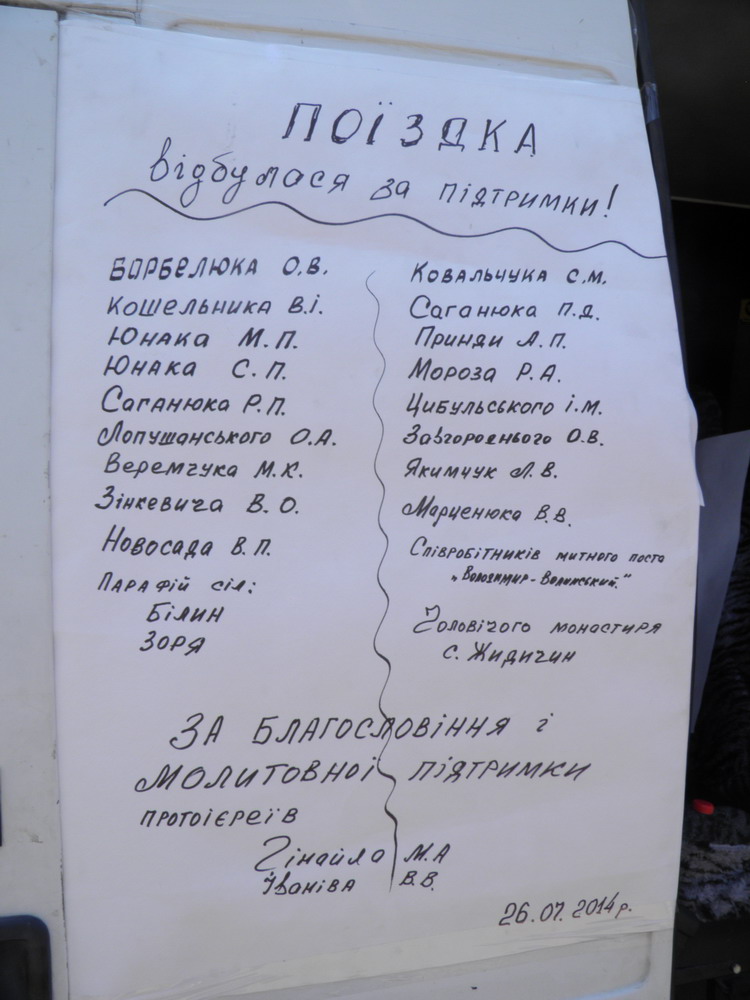 ПОЇЗДКА
відбулася за підтримки!
БАРБЕЛЮКА О.В.
КОШЕЛЬНИКА В.І.
ЮНАКА М.П.
ЮНАКА С.П.
САГАНЮКА Р.П.
ЛОПУШАНСЬКОГО О.А.
ВЕРЕМЧУКА М.К.
ЗІНКЕВИЧА В.О.
НОВОСАДА В.П.
ПАРАФІЙ СІЛ:
БІЛИН
ЗОРЯ
КОВАЛЬЧУКА С.М.
САГАНЮКА П.Д.
ПРИНДИ Л.П.
МОРОЗА Р.А.
ЦИБУЛЬСЬКОГО І.М.
ЗАВГОРОДНЬОГО О.В.
ЯКИМЧУК Л.В.
МАРЦЕНЮКА В.В.
СПІВРОБІТНИКІВ МИТНОГО ПОСТА
„ВОЛОДИМИР-ВОЛИНСЬКИЙ."
ЧОЛОВІЧОГО МОНАСТИРЯ
С. ЖИДИЧИН
ЗА БЛАГОСЛОВІННЯ І
МОЛИТОВНОЇ ПІДТРИМКИ
ПРОТОІЄРЕЇВ
ГІНАЙЛА М.А
ІВАНІВА В.В.
26.07.2014р.